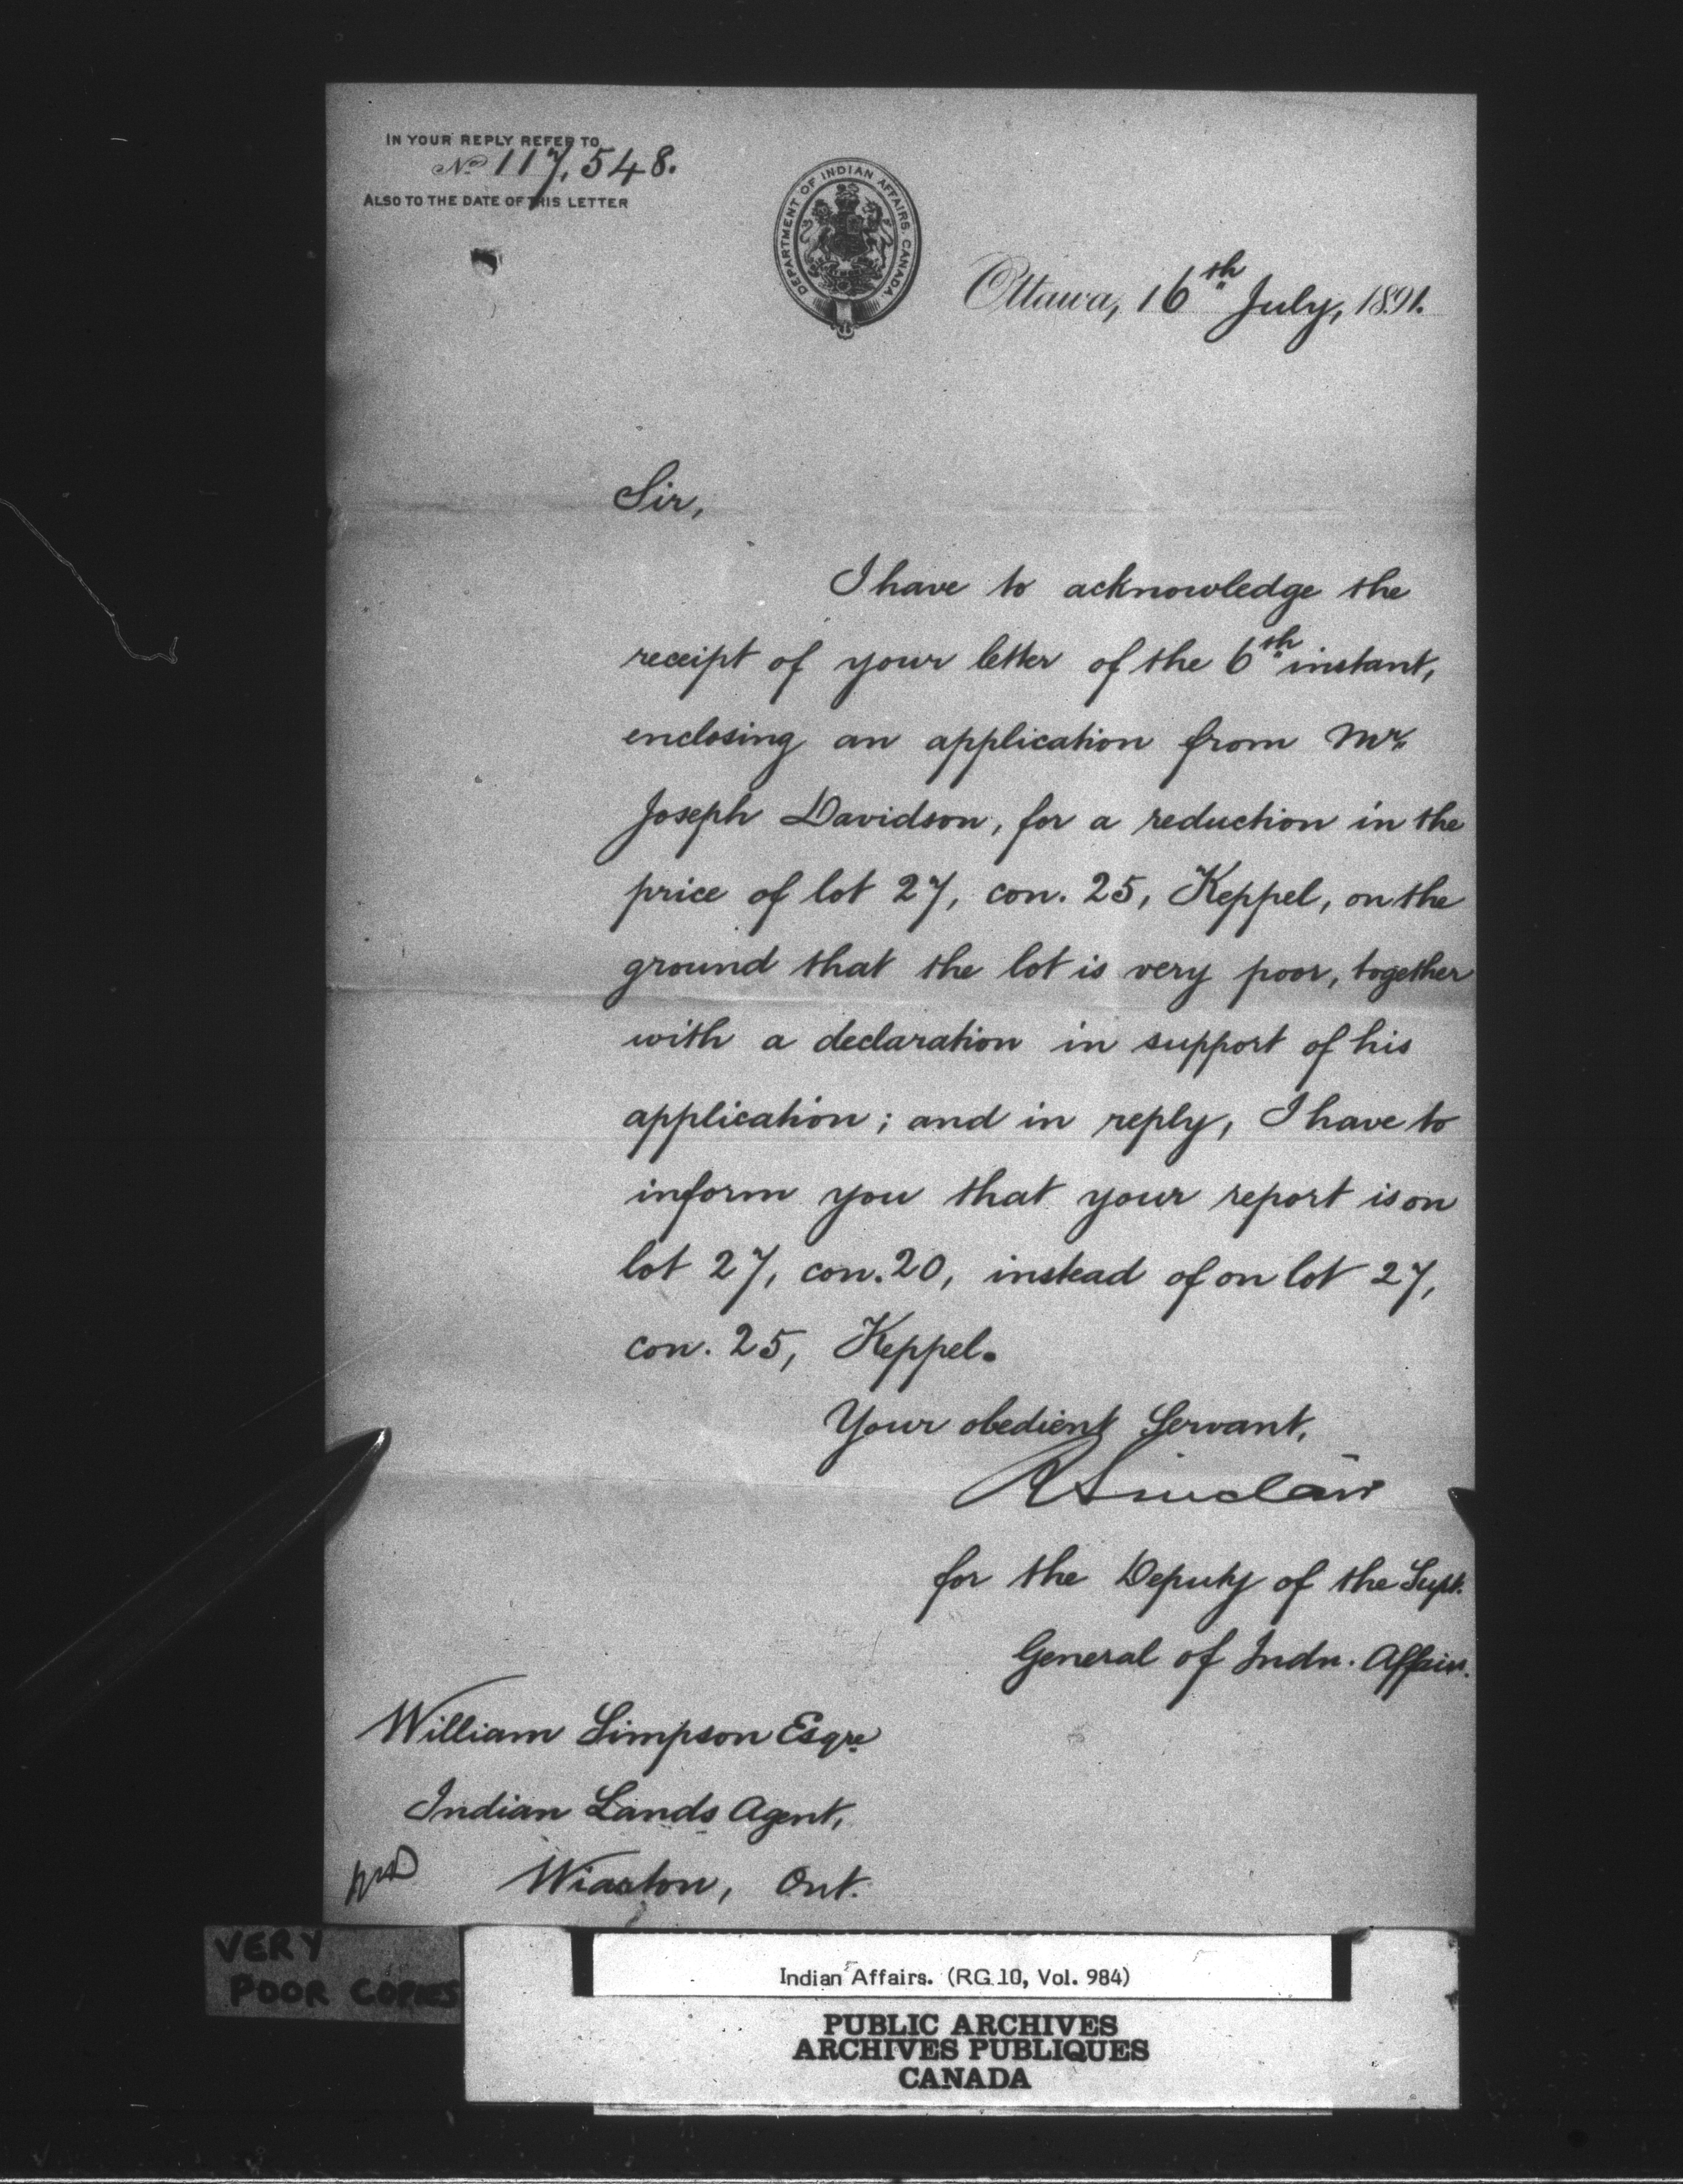 IN YOUR REPLY REFER TO
No 117,548.
ALSO TO THE DATE OF THIS LETTER
DEPARTMENT OF INDIAN AFFAIRS, CANADA.
Ottawa, 16th July, 1891.
Sir,
I have to acknowledge the
receipt of your letter of the 6th instant,
enclosing an application from Mr.
Joseph Davidson, for a reduction in the
price of lot 27, con. 25, Keppel, on the
ground that the lot is very poor, together
with a declaration in support of his
application; and in reply, I have to
inform you that your report is on
lot 27, con. 20, instead of on lot 27,
con. 25, Keppel.
Your obedient Servant,
R Sinclair
for the Deputy of the Supt.
General of Indn. Affairs.
William Simpson Esqre
Indian Lands Agent,
Wiarton, Ont.
VERY
POOR COPIES
Indian Affairs. (RG 10, Vol. 984)
PUBLIC ARCHIVES
ARCHIVES PUBLIQUES
CANADA